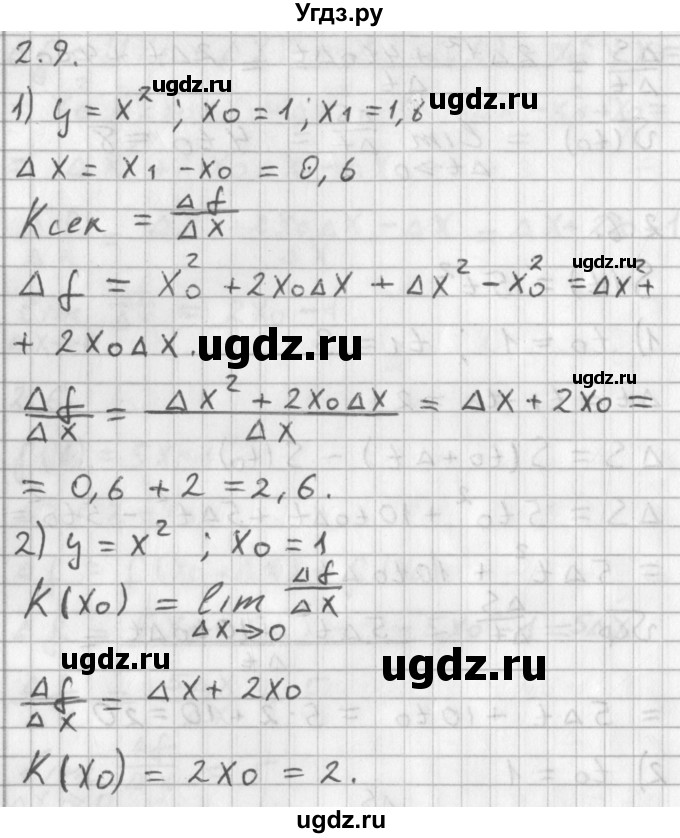 Угдз.ру
2.9.
ugdz.ru
ugdz.ru
1) y = x² ; x₀ = 1 ; x₁ = 1,6
Δx = x₁ - x₀ = 0,6
Kсек = Δf/Δx
ugdz.ru
Δf = x₀² + 2x₀Δx + Δx² - x₀² = Δx² +
+ 2x₀Δx.
ugdz.ru
ugdz.ru
Δf/Δx = (Δx² + 2x₀Δx)/Δx = Δx + 2x₀ =
= 0,6 + 2 = 2,6.
2) y = x² ; x₀ = 1
K(x₀) = lim Δf/Δx
Δx→0
ugdz.ru
ugdz.ru
Δf/Δx = Δx + 2x₀
K(x₀) = 2x₀ = 2.